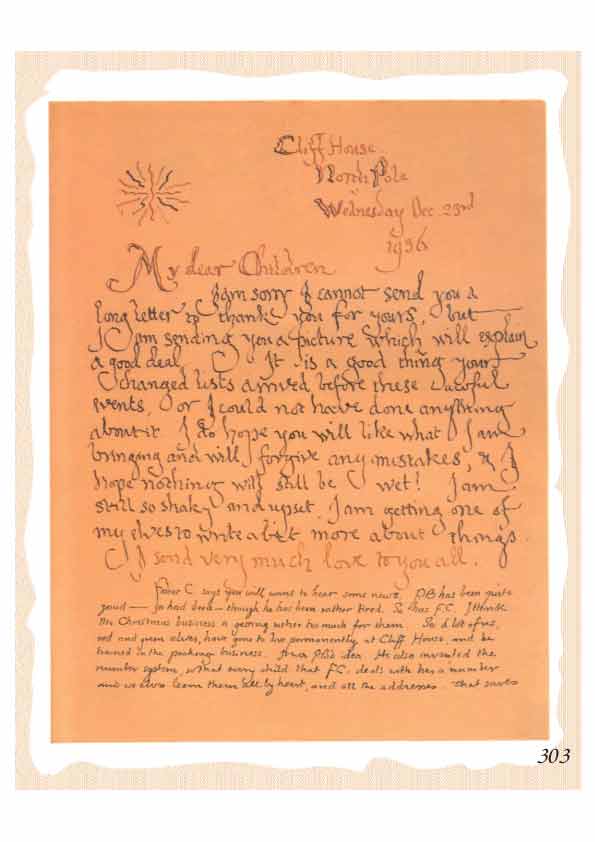 Cliff House
North Pole
Wednesday Dec. 23rd
1936
My dear Children
I am sorry I cannot send you a
long letter to thank you for yours, but
I am sending you a picture which will explain
a good deal. It is a good thing your
changed lists arrived before these awful
events, or I could not have done anything
about it. I do hope you will like what I am
bringing and will forgive any mistakes, & I
hope nothing will still be wet! I am
still so shaky and upset, I am getting one of
my elves to write a bit more about things.
I send very much love to you all.
Father C says you will want to hear some news. PB has been quite
good — or had been — though he has been rather tired. So has F.C. I think
the Christmas business is getting rather too much for them. So a lot of us,
red and green elves, have gone to live permanently at Cliff House, and be
trained in the packing business. It was PB's idea. He also invented the
number system, so that every child that F.C. deals with has a number
and we elves learn them all by heart, and all the addresses. That saves
303